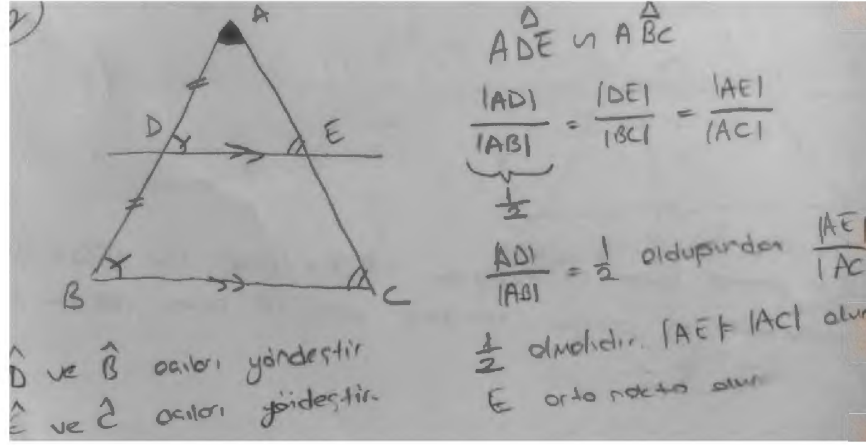 2)
A
D E
B C
D̂ ve B̂ açıları yöndeştir
Ê ve Ĉ açıları yöndeştir.
ADE ∽ ABC
|AD|/|AB| = |DE|/|BC| = |AE|/|AC|
1/2
|AD|/|AB| = 1/2 olduğundan |AE|/|AC|
1/2 olmalıdır. |AE|=|AC| olur
E orta nokta olur